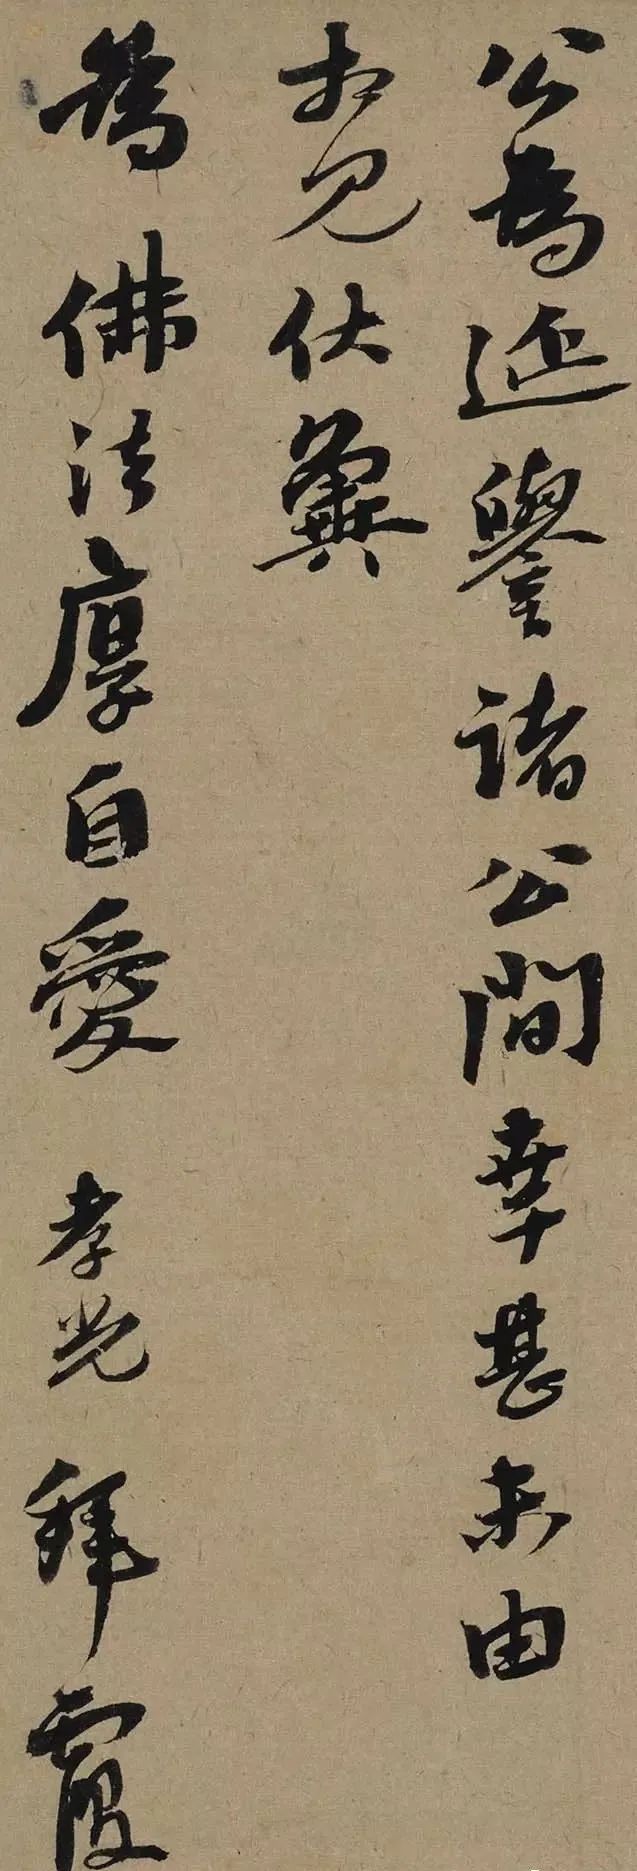 公為延譽諸公間幸甚未由
相見伏冀
為佛法厚自愛 孝光 拜覆